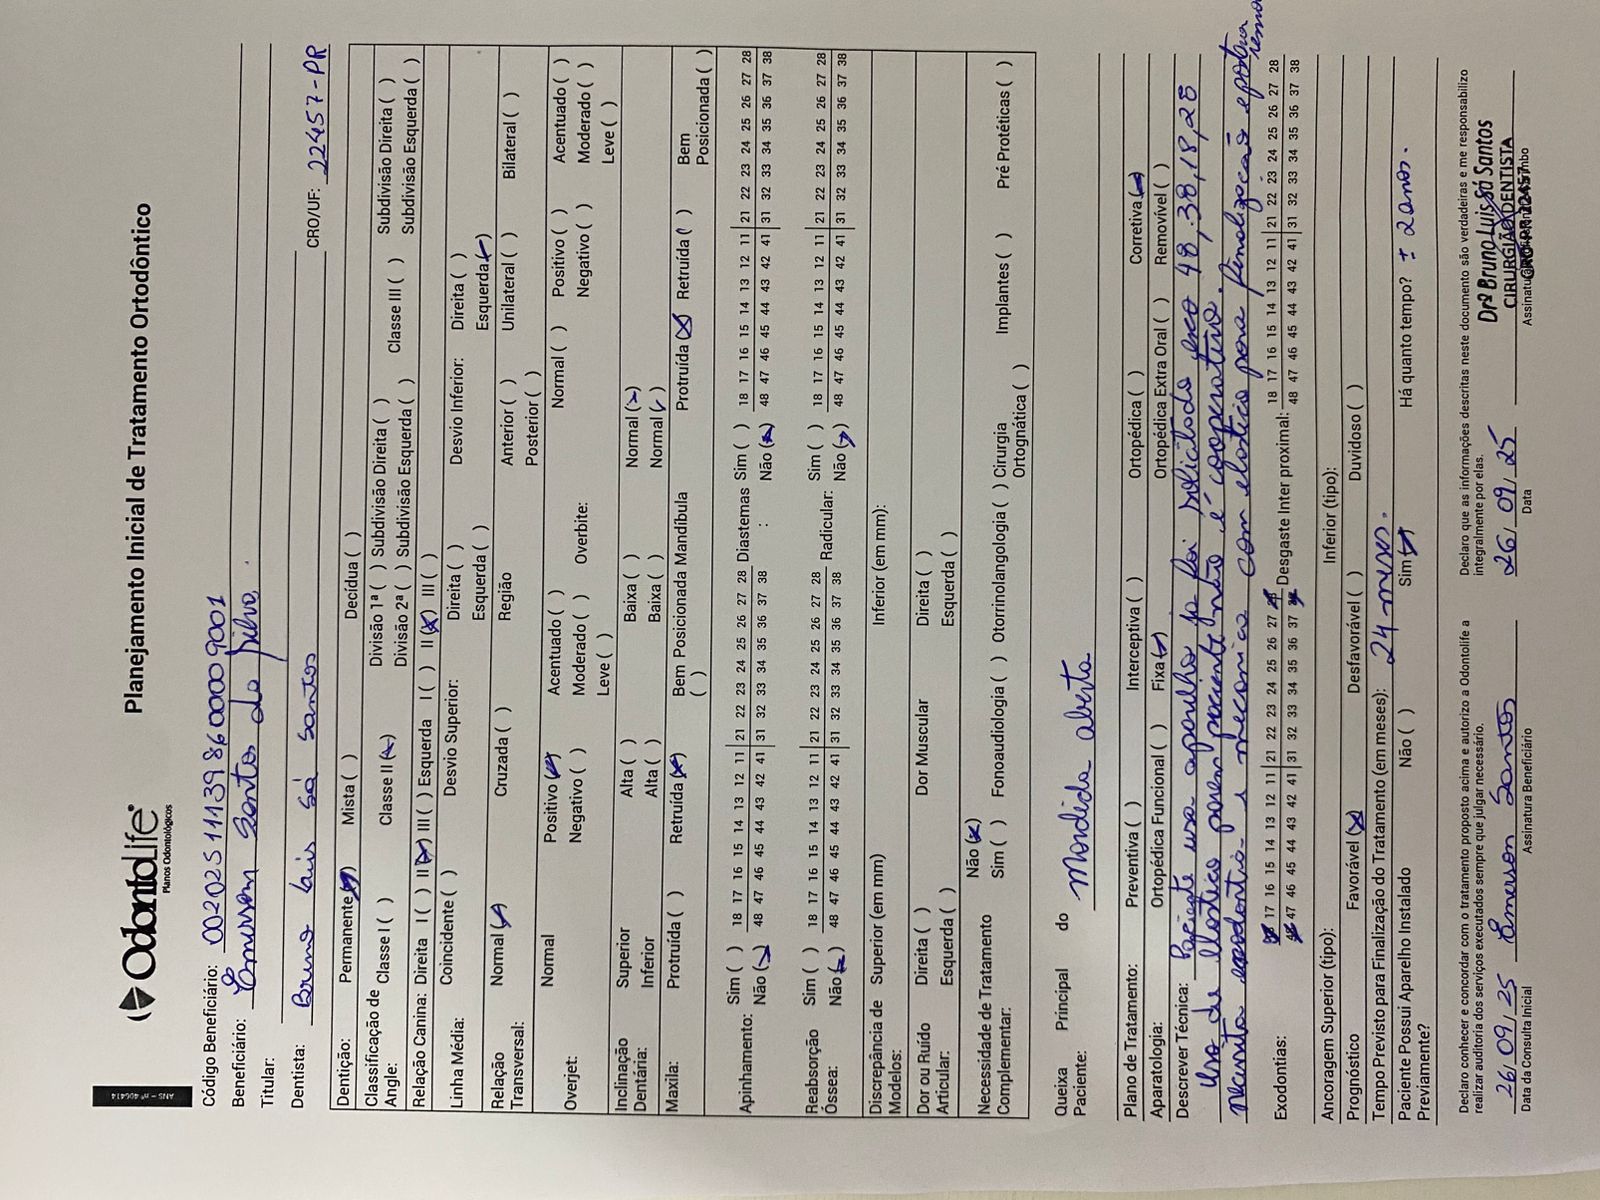 ANS - nº 406414
OdontoLife
Planos Odontológicos
Planejamento Inicial de Tratamento Ortodôntico
Código Beneficiário: 00202511139860000 9001
Beneficiário: Emerson Santos da Silva.
Titular:
Dentista: Bruno Luis Sá Santos CRO/UF: 22457-PR
Dentição: Permanente (x) Mista ( ) Decídua ( )
Classificação de Angle: Classe I ( ) Classe II (x) Divisão 1ª ( ) Subdivisão Direita ( ) Classe III ( ) Subdivisão Direita ( )
Divisão 2ª ( ) Subdivisão Esquerda ( ) Subdivisão Esquerda ( )
Relação Canina: Direita I ( ) II (x) III ( ) Esquerda I ( ) II (x) III ( )
Linha Média: Coincidente ( ) Desvio Superior: Direita ( ) Desvio Inferior: Direita ( )
Esquerda ( ) Esquerda (x)
Relação Transversal: Normal (x) Cruzada ( ) Região Anterior ( ) Unilateral ( ) Bilateral ( )
Posterior ( )
Overjet: Normal Positivo (x) Acentuado ( ) Overbite: Normal ( ) Positivo ( ) Acentuado ( )
Negativo ( ) Moderado ( ) Negativo ( ) Moderado ( )
Leve ( ) Leve ( )
Inclinação Dentária: Superior Alta ( ) Baixa ( ) Normal (x)
Inferior Alta ( ) Baixa ( ) Normal (x)
Maxila: Protruída ( ) Retruída (x) Bem Posicionada ( ) Mandíbula Protruída (x) Retruída ( ) Bem Posicionada ( )
Apinhamento: Sim ( ) 18 17 16 15 14 13 12 11 | 21 22 23 24 25 26 27 28 Diastemas : Sim ( ) 18 17 16 15 14 13 12 11 | 21 22 23 24 25 26 27 28
Não (x) 48 47 46 45 44 43 42 41 | 31 32 33 34 35 36 37 38 Não (x) 48 47 46 45 44 43 42 41 | 31 32 33 34 35 36 37 38
Reabsorção Óssea: Sim ( ) 18 17 16 15 14 13 12 11 | 21 22 23 24 25 26 27 28 Radicular: Sim ( ) 18 17 16 15 14 13 12 11 | 21 22 23 24 25 26 27 28
Não (x) 48 47 46 45 44 43 42 41 | 31 32 33 34 35 36 37 38 Não (x) 48 47 46 45 44 43 42 41 | 31 32 33 34 35 36 37 38
Discrepância de Modelos: Superior (em mm) Inferior (em mm):
Dor ou Ruído Articular: Direita ( ) Dor Muscular Direita ( )
Esquerda ( ) Esquerda ( )
Necessidade de Tratamento Complementar: Não (x)
Sim ( ) Fonoaudiologia ( ) Otorrinolangologia ( ) Cirurgia Ortognática ( ) Implantes ( ) Pré Protéticas ( )
Queixa Principal do Paciente: Mordida aberta
Plano de Tratamento: Preventiva ( ) Interceptiva ( ) Ortopédica ( ) Corretiva (x)
Aparatologia: Ortopédica Funcional ( ) Fixa (x) Ortopédica Extra Oral ( ) Removível ( )
Descrever Técnica: Paciente usa aparelho ja foi solicitado exo 48, 38, 18, 28
uso de elastico porem paciente não é cooperativo.
Necessita exodontia e mecanica com elastico para finalização e
Exodontias: 18 17 16 15 14 13 12 11 | 21 22 23 24 25 26 27 28 Desgaste Inter proximal: 18 17 16 15 14 13 12 11 | 21 22 23 24 25 26 27 28
48 47 46 45 44 43 42 41 | 31 32 33 34 35 36 37 38 48 47 46 45 44 43 42 41 | 31 32 33 34 35 36 37 38
Ancoragem Superior (tipo): Inferior (tipo):
Prognóstico Favorável (x) Desfavorável ( ) Duvidoso ( )
Tempo Previsto para Finalização do Tratamento (em meses): 24 meses.
Paciente Possui Aparelho Instalado Previamente? Não ( ) Sim (x) Há quanto tempo? ± 2 anos.
Declaro conhecer e concordar com o tratamento proposto acima e autorizo a Odontolife a
realizar auditoria dos serviços executados sempre que julgar necessário.
Declaro que as informações descritas neste documento são verdadeiras e me responsabilizo
integralmente por elas.
26/09/25 Emerson Santos 26/09/25
Data da Consulta Inicial Assinatura Beneficiário Data
Drº Bruno Luis Sá Santos
CIRURGIÃO DENTISTA
CRO-PR 22457